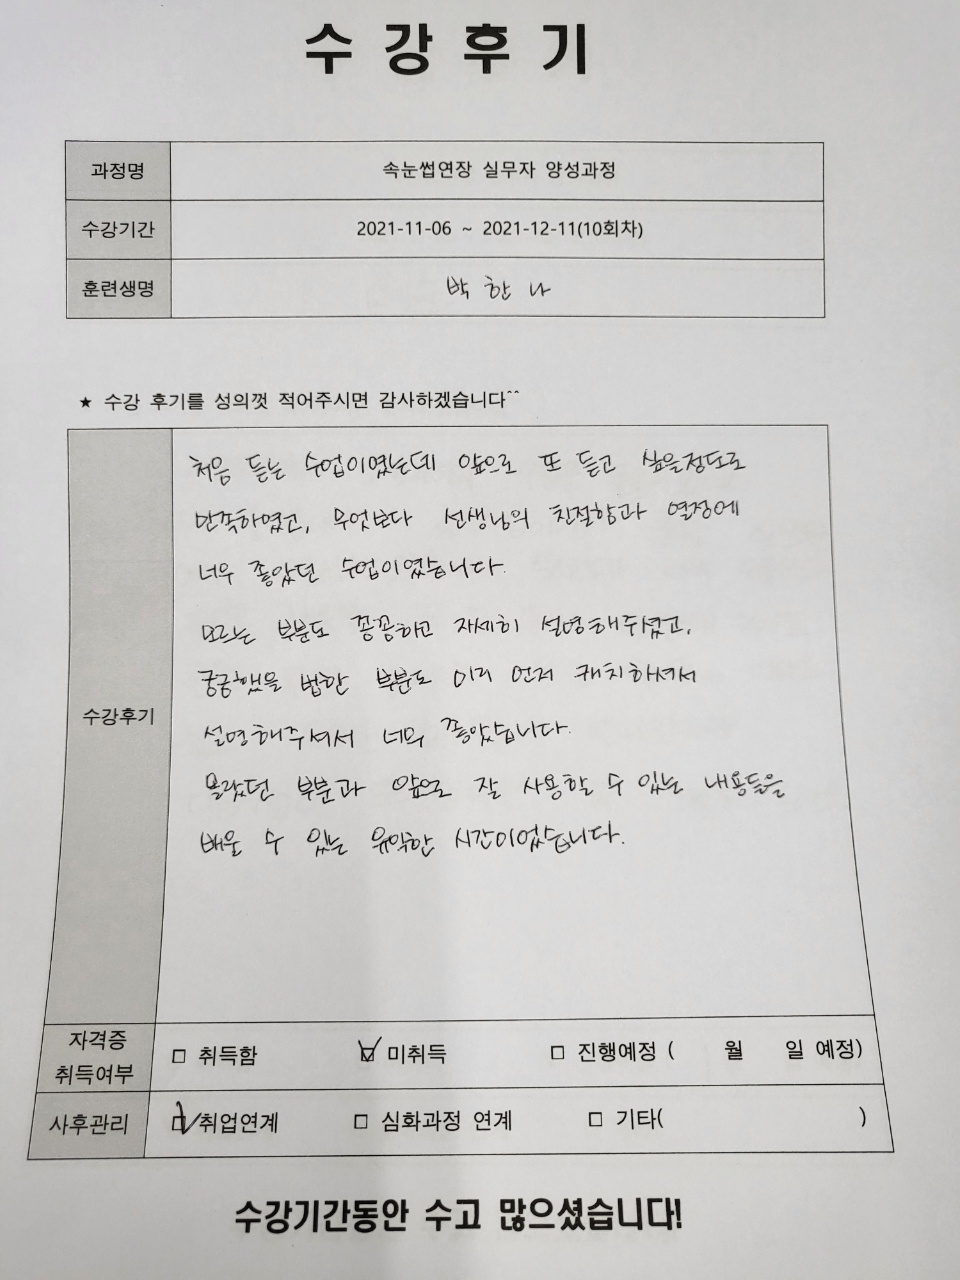 수 강 후 기
과정명 속눈썹연장 실무자 양성과정
수강기간 2021-11-06 ~ 2021-12-11(10회차)
훈련생명 박 한 나
★ 수강 후기를 성의껏 적어주시면 감사하겠습니다^^
수강후기
처음 듣는 수업이였는데 앞으로 또 듣고 싶을정도로
만족하였고, 무엇보다 선생님의 친절함과 열정에
너무 좋았던 수업이였습니다.
모르는 부분도 꼼꼼하고 자세히 설명해주셨고,
궁금했을 법한 부분도 미리 먼저 캐치하셔서
설명해주셔서 너무 좋았습니다.
몰랐던 부분과 앞으로 잘 사용할 수 있는 내용들을
배울 수 있는 유익한 시간이었습니다.
자격증 취득여부 □ 취득함 ☑ 미취득 □ 진행예정 ( 월 일 예정)
사후관리 ☑ 취업연계 □ 심화과정 연계 □ 기타( )
수강기간동안 수고 많으셨습니다!